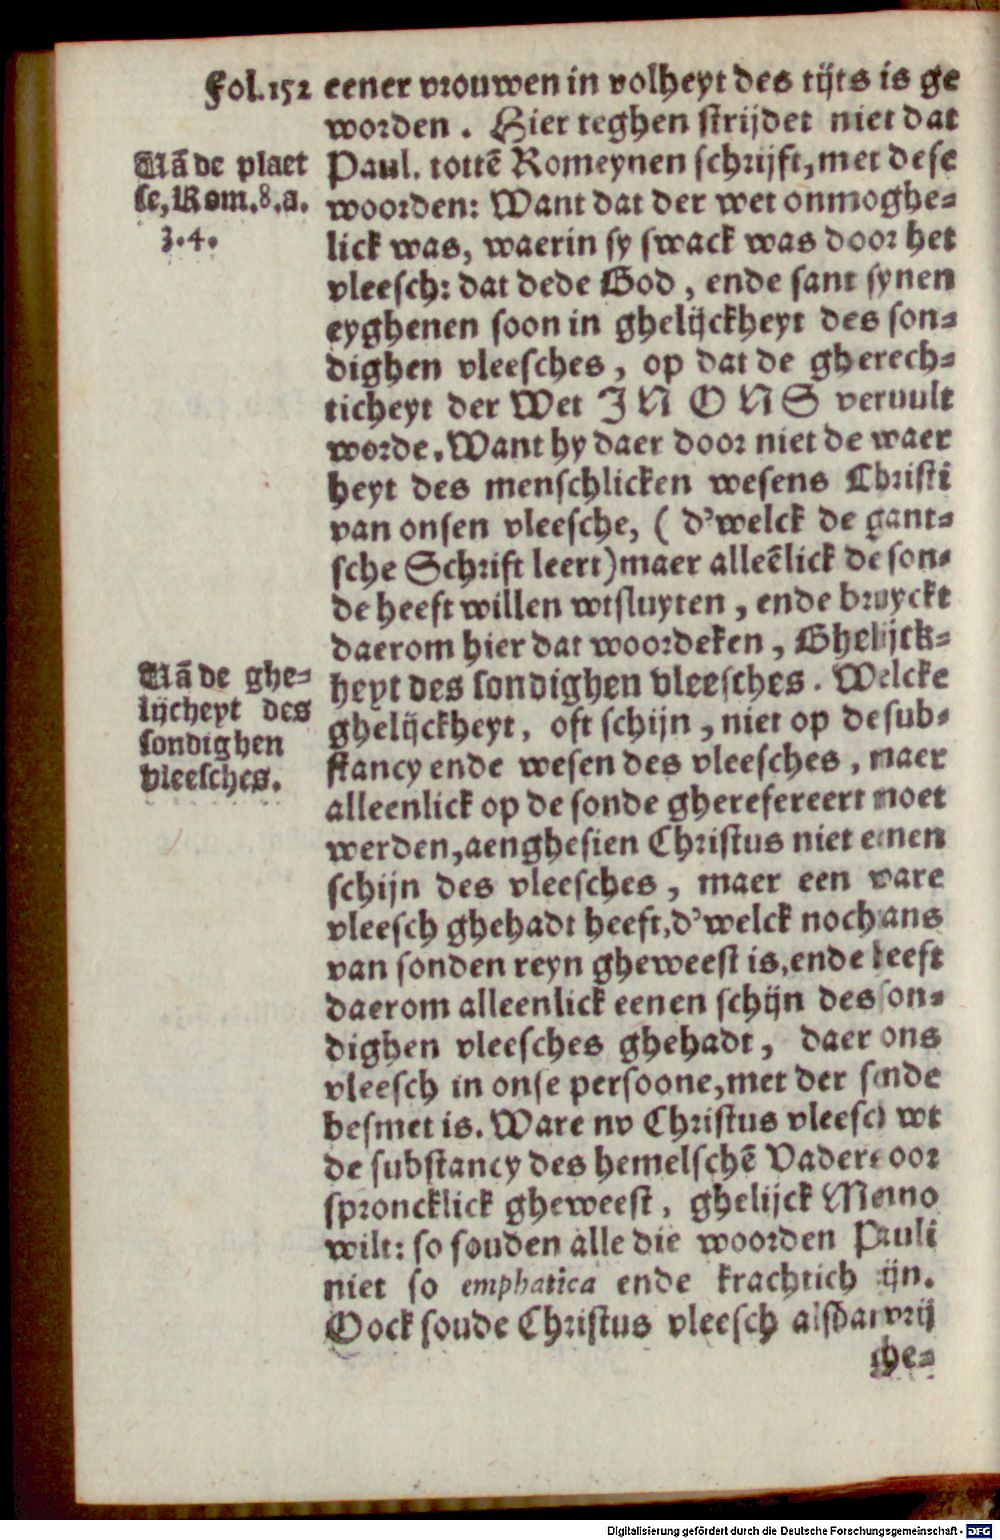 Fol. 152
eener vrouwen in volheyt des tijts is ge
worden. Hier teghen strijdet niet dat
Vã de plaet
se, Rom. 8. a.
3. 4.
Paul. tottẽ Romeynen schrijft, met dese
woorden: Want dat der wet onmoghe-
lick was, waerin sy swack was door het
vleesch: dat dede God, ende sant synen
eyghenen soon in ghelijckheyt des son-
dighen vleesches, op dat de gherech-
ticheyt der Wet IN ONS vervult
worde. Want hy daer door niet de waer
heyt des menschlicken wesens Christi
van onsen vleesche, (d'welck de gant-
sche Schrift leert) maer alleẽlick de son-
de heeft willen wtsluyten, ende bruyckt
daerom hier dat woordeken, Ghelijck-
Vã de ghe-
lijcheyt des
sondighen
vleesches.
heyt des sondighen vleesches. Welcke
ghelijckheyt, oft schijn, niet op de sub-
stancy ende wesen des vleesches, maer
alleenlick op de sonde gherefereert moet
werden, aenghesien Christus niet eenen
schijn des vleesches, maer een ware
vleesch ghehadt heeft, d'welck nochans
van sonden reyn gheweest is, ende heeft
daerom alleenlick eenen schijn des son-
dighen vleesches ghehadt, daer ons
vleesch in onse persoone, met der sonde
besmet is. Ware nv Christus vleesch wt
de substancy des hemelschẽ Vaders oor
sproncklick gheweest, ghelijck Menno
wilt: so souden alle die woorden Pauli
niet so emphatica ende krachtich zijn.
Oock soude Christus vleesch alsdan vrij
ghe-
Digitalisierung gefördert durch die Deutsche Forschungsgemeinschaft - DFG